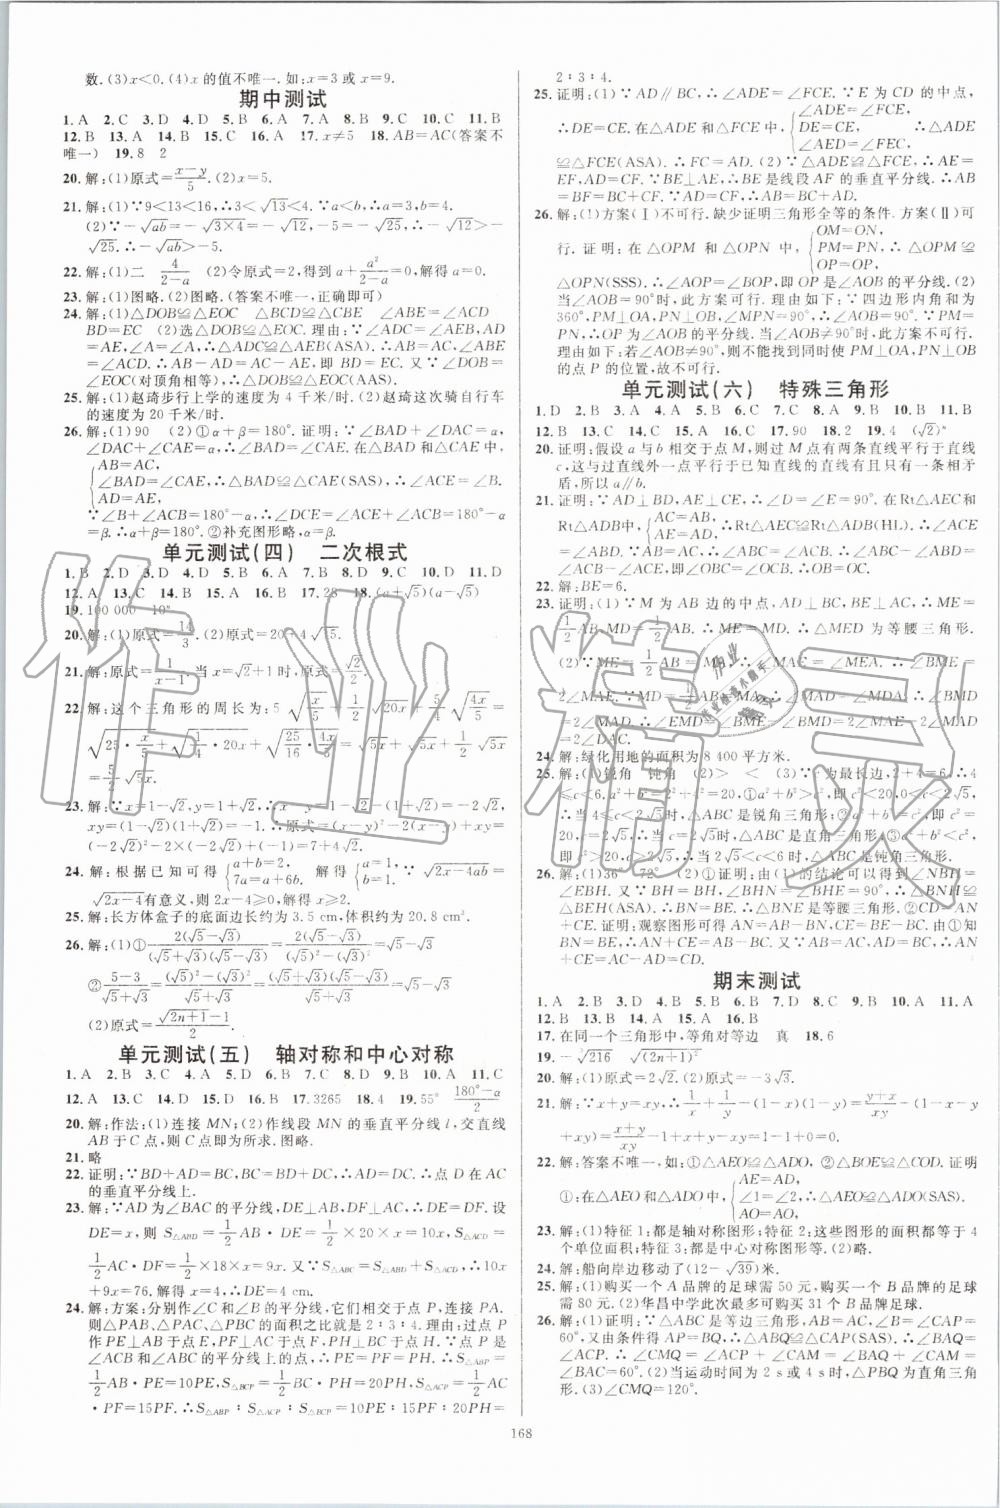 数. (3)x<0. (4)x 的值不唯一. 如:x=3 或 x=9.
期中测试
1. A 2. C 3. D 4. D 5. B 6. A 7. A 8. B 9. C 10. C 11. B
12. B 13. A 14. B 15. C 16. A 17. x≠5 18. AB=AC(答案不
唯一) 19. 8 2
20. 解:(1)原式=(x−y)/5. (2)x=5.
21. 解:(1)∵9<13<16,∴3<√13<4. ∵a<b,∴a=3,b=4.
(2)∵−√ab=−√(3×4)=−√12,−5=−√25. ∵−√12>−
√25. ∴−√ab>−5.
22. 解:(1)二 4/(2−a) (2)令原式=2,得到 a+a²/(2−a)=0,解得 a=0.
23. 解:(1)图略. (2)图略. (答案不唯一,正确即可)
24. 解:(1)△DOB≌△EOC △BCD≌△CBE ∠ABE=∠ACD
BD=EC (2)选△DOB≌△EOC. 理由:∵∠ADC=∠AEB,AD
=AE,∠A=∠A,∴△ADC≌△AEB(ASA). ∴AB=AC,∠ABE
=∠ACD. ∴AB−AD=AC−AE,即 BD=EC. 又∵∠DOB=
∠EOC(对顶角相等),∴△DOB≌△EOC(AAS).
25. 解:(1)赵琦步行上学的速度为 4 千米/时. (2)赵琦这次骑自行车
的速度为 20 千米/时.
26. 解:(1)90 (2)①α+β=180°. 证明:∵∠BAD+∠DAC=α,
∠DAC+∠CAE=α,∴∠BAD=∠CAE. 在△BAD 和△CAE 中,
{AB=AC,
∠BAD=∠CAE,∴△BAD≌△CAE(SAS). ∴∠ACE=∠B.
AD=AE,
∵∠B+∠ACB=180°−α,∴∠DCE=∠ACE+∠ACB=180°−α
=β. ∴α+β=180°. ②补充图形略,α=β.
单元测试(四) 二次根式
1. B 2. D 3. D 4. D 5. B 6. A 7. D 8. D 9. C 10. D 11. D
12. A 13. C 14. B 15. A 16. B 17. 28 18. (a+√5)(a−√5)
19. 100 000 10ⁿ
20. 解:(1)原式=14/3. (2)原式=20+4√5.
21. 解:原式=1/(x−1). 当 x=√2+1时,原式=√2/2.
22. 解:这个三角形的周长为:5√(x/5)+1/2√20x+5/4√(4x/5)=
√(25·x/5)+√(1/4·20x)+√(25/16·4x/5)=√5x+√5x+1/2√5x
=5/2√5x.
23. 解:∵x=1−√2,y=1+√2,∴x−y=(1−√2)−(1+√2)=−2√2,
xy=(1−√2)(1+√2)=−1. ∴原式=(x−y)²−2(x−y)+xy=
(−2√2)²−2×(−2√2)+(−1)=7+4√2.
24. 解:根据已知可得{a+b=2, 7a=a+6b, 解得{a=1, b=1. ∵√(2x−4ab)=
√(2x−4)有意义,则 2x−4≥0,解得 x≥2.
25. 解:长方体盒子的底面边长约为 3.5 cm,体积约为 20.8 cm³.
26. 解:(1)①2(√5−√3)/((√5+√3)(√5−√3))=2(√5−√3)/((√5)²−(√3)²)=√5−√3
②(5−3)/(√5+√3)=((√5)²−(√3)²)/(√5+√3)=(√5+√3)(√5−√3)/(√5+√3)=√5−√3
(2)原式=(√(2n+1)−1)/2.
单元测试(五) 轴对称和中心对称
1. A 2. B 3. C 4. D 5. B 6. C 7. C 8. B 9. B 10. A 11. C
12. A 13. C 14. D 15. D 16. B 17. 3265 18. 4 19. 55° (180°−α)/2
20. 解:作法:(1)连接 MN;(2)作线段 MN 的垂直平分线 l,交直线
AB 于 C 点,则 C 点即为所求. 图略.
21. 略
22. 证明:∵BD+AD=BC,BC=BD+DC,∴AD=DC. ∴点 D 在 AC
的垂直平分线上.
23. 解:∵AD 为∠BAC 的平分线,DE⊥AB,DF⊥AC,∴DE=DF. 设
DE=x,则 S△ABD=1/2AB·DE=1/2×20×x=10x,S△ACD=1/2
AC·DF=1/2×18×x=9x. 又∵S△ABC=S△ABD+S△ACD,∴10x
+9x=76. 解得 x=4. ∴DE=4 cm.
24. 解:方案:分别作∠C 和∠B 的平分线,它们相交于点 P,连接 PA.
则△PAB、△PAC、△PBC 的面积之比就是 2∶3∶4. 理由:过点 P
作 PE⊥AB 于点 E,PF⊥AC 于点 F,PH⊥BC 于点 H. ∵点 P 是
∠ACB 和∠ABC 的平分线的交点,∴PE=PF=PH. ∵S△ABP=
1/2AB·PE=10PE,S△BCP=1/2BC·PH=20PH,S△ACP=1/2AC
·PF=15PF. ∴S△ABP∶S△ACP∶S△BCP=10PE∶15PF∶20PH=
2∶3∶4.
25. 证明:(1)∵AD∥BC,∴∠ADE=∠FCE. ∵E 为 CD 的中点,
∴DE=CE. 在△ADE 和△FCE 中,{∠ADE=∠FCE, DE=CE, ∠AED=∠FEC, ∴△ADE
≌△FCE(ASA). ∴FC=AD. (2)∵△ADE≌△FCE,∴AE=
EF,AD=CF. ∵BE⊥AE,∴BE 是线段 AF 的垂直平分线. ∴AB
=BF=BC+CF. ∵AD=CF,∴AB=BC+AD.
26. 解:(1)方案(Ⅰ)不可行. 缺少证明三角形全等的条件. 方案(Ⅱ)可
行. 证明:在△OPM 和△OPN 中,{OM=ON, PM=PN, OP=OP, ∴△OPM≌
△OPN(SSS). ∴∠AOP=∠BOP,即 OP 是∠AOB 的平分线. (2)
当∠AOB=90°时,此方案可行. 理由如下:∵四边形内角和为
360°,PM⊥OA,PN⊥OB,∠MPN=90°,∴∠AOB=90°. ∵PM=
PN,∴OP 为∠AOB 的平分线. 当∠AOB≠90°时,此方案不可行.
理由如下:若∠AOB≠90°,则不能找到同时使 PM⊥OA,PN⊥OB
的点 P 的位置,故不可行.
单元测试(六) 特殊三角形
1. D 2. B 3. A 4. C 5. A 6. C 7. C 8. A 9. B 10. B 11. B
12. B 13. C 14. C 15. A 16. C 17. 90 18. 2 19. 4 (√2)ⁿ
20. 证明:假设 a 与 b 相交于点 M,则过 M 点有两条直线平行于直线
c,这与过直线外一点平行于已知直线的直线有且只有一条相矛
盾,所以 a∥b.
21. 证明:∵AD⊥BD,AE⊥CE,∴∠D=∠E=90°. 在Rt△AEC和
Rt△ADB中,{AC=AB, AE=AD, ∴Rt△AEC≌Rt△ADB(HL). ∴∠ACE
=∠ABD. ∵AB=AC,∴∠ABC=∠ACB. ∴∠ABC−∠ABD=
∠ACB−∠ACE,即∠OBC=∠OCB. ∴OB=OC.
22. 解:BE=6.
23. 证明:(1)∵M 为 AB 边的中点,AD⊥BC,BE⊥AC,∴ME=
1/2AB,MD=1/2AB. ∴ME=MD. ∴△MED 为等腰三角形.
(2)∵ME=1/2AB=MA,∴∠MAE=∠MEA. ∴∠BME=
2∠MAE. ∵MD=1/2AB=MA,∴∠MAD=∠MDA. ∴∠BMD=
2∠MAD. ∴∠EMD=∠BME−∠BMD=2∠MAE−2∠MAD
=2∠DAC.
24. 解:绿化用地的面积为 8 400 平方米.
25. 解:(1)锐角 钝角 (2)> < (3)∵c 为最长边,2+4=6,∴4
≤c<6. a²+b²=2²+4²=20,①a²+b²>c²,即 c²<20,0<c<2√5,
∴当 4≤c<2√5 时,△ABC 是锐角三角形;②a²+b²=c²,即 c²=
20,∴当 c=2√5时,△ABC 是直角三角形;③a²+b²<c²,即 c²>
20,c>2√5,∴当 2√5<c<6 时,△ABC 是钝角三角形.
26. 解:(1)36° 72° (2)①证明:由(1)的结论可以得到∠NBH=
∠EBH. 又∵BH=BH,∠BHN=∠BHE=90°,∴△BNH≌
△BEH(ASA). ∴BN=BE. ∴△BNE 是等腰三角形. ②CD=AN
+CE. 证明:观察图形可得 AN=AB−BN,CE=BE−BC. 由①知
BN=BE,∴AN+CE=AB−BC. ∵CD=AC−AD=AB−BC,∴AN
+CE=AC−AD=CD.
期末测试
1. A 2. B 3. C 4. B 5. B 6. B 7. D 8. C 9. A 10. A 11. A
12. D 13. B 14. A 15. A 16. B
17. 在同一个三角形中,等角对等边 真 18. 6
19. −√216 √((2n+1)³)
20. 解:(1)原式=2√2. (2)原式=−3√3.
21. 解:∵x+y=xy,∴1/x+1/y−(1−x)(1−y)=(y+x)/xy−(1−x−y
+xy)=(x+y)/xy−1+x+y−xy=1−1+0=0.
22. 解:答案不唯一,如:①△AEO≌△ADO,②△BOE≌△COD. 证明
①:在△AEO和△ADO中,{AE=AD, ∠1=∠2, AO=AO, ∴△AEO≌△ADO(SAS).
23. 解:(1)特征 1:都是轴对称图形;特征 2:这些图形的面积都等于 4
个单位面积;特征 3:都是中心对称图形等. (2)略.
24. 解:船向岸边移动了(12−√39)米.
25. 解:(1)购买一个 A 品牌的足球需 50 元,购买一个 B 品牌的足球
需 80 元. (2)华昌中学此次最多可购买 31 个 B 品牌足球.
26. 解:(1)证明:∵△ABC 是等边三角形,∴AB=AC,∠B=∠CAP=
60°,又由条件得 AP=BQ,∴△ABQ≌△CAP(SAS). ∴∠BAQ=
∠ACP. ∴∠CMQ=∠ACP+∠CAM=∠BAQ+∠CAM=
∠BAC=60°. (2)当运动时间为 2 s 或 4 s 时,△PBQ 为直角三角
形. (3)∠CMQ=120°.
168
作业精灵